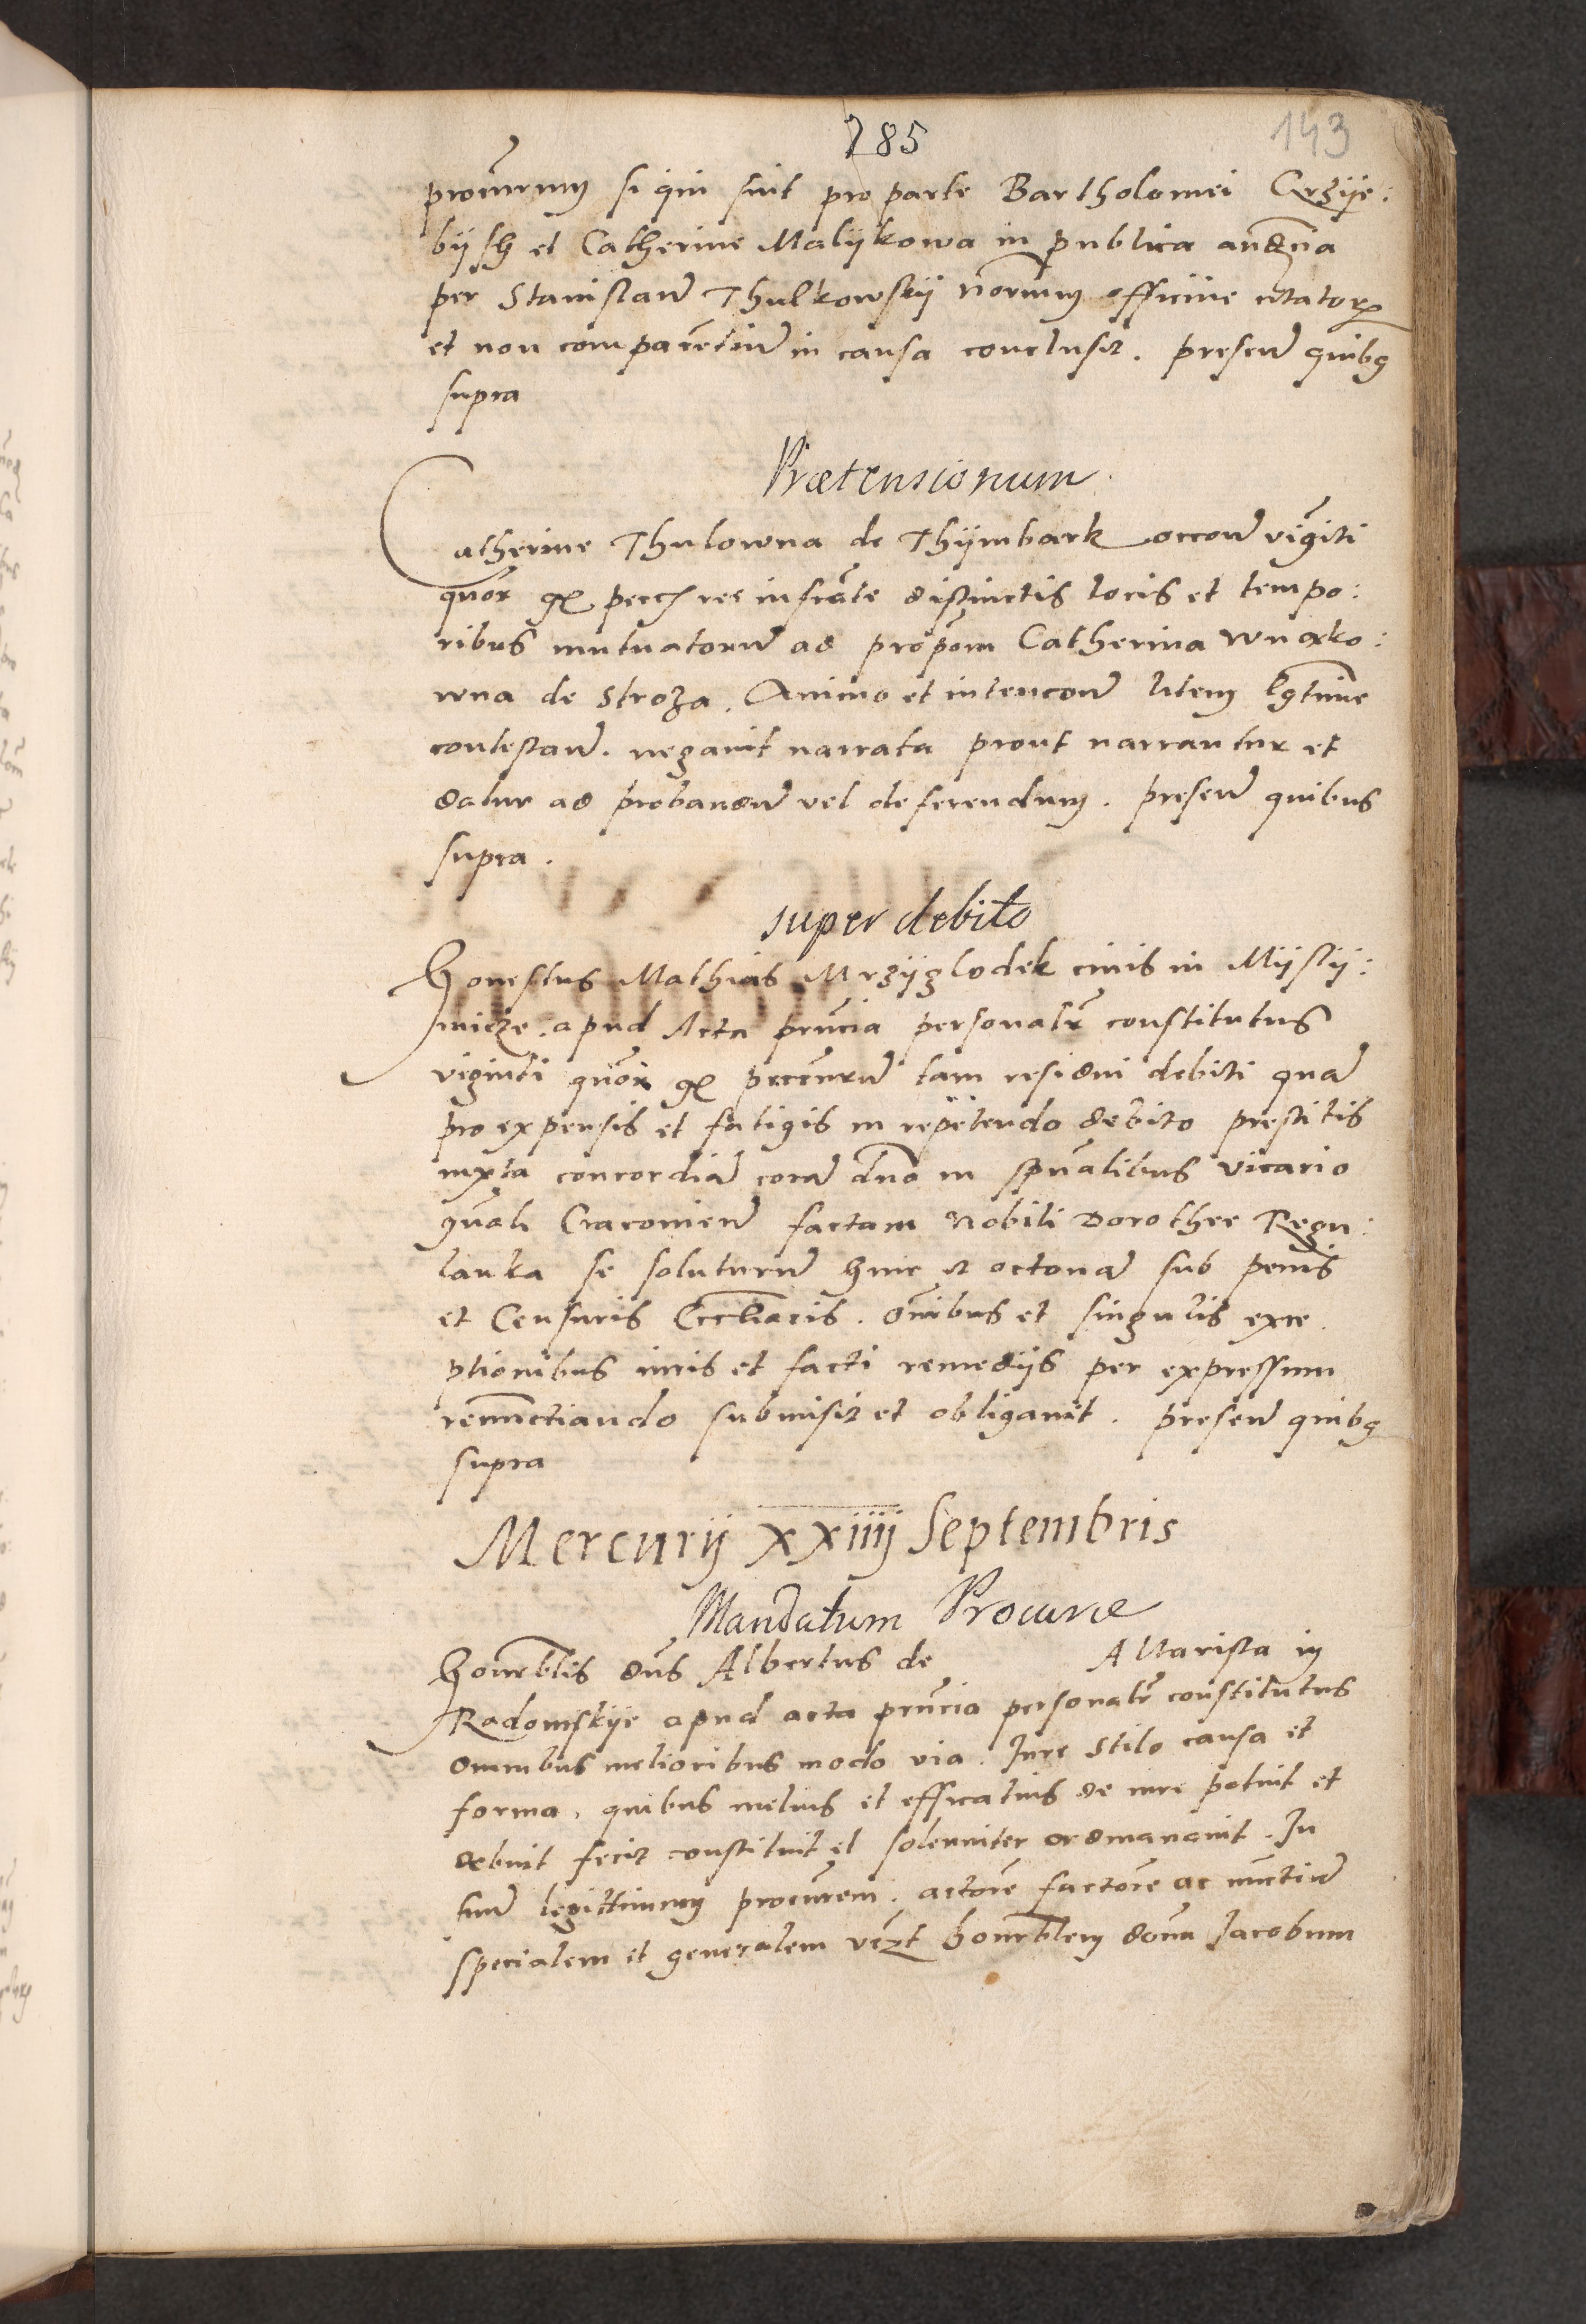 285
143
procurm̃ si qui sint pro parte Bartholomei Grzÿe:
bÿsh et Catherine Malÿkowa in publica audn̄a
per Stanislaũ Thulkowskÿ nor̃ium officine citator̃
et non comparentiũ in causa conclusit. presen̄ quibg
supra
Prætensionum
Catherine Thulowna de Thÿmbark occon̄ vigiti
quor̃ gr̃ pecch res infrãte distinctis locis et tempo:
ribus mutuatorũ ad propõm Catherina Wnæko:
wna de Stroza. Animo et intencon̄ litem lgtime
contestan̄. negauit narrata prout narrantur et
datur ad probandũ vel deferendum. presen̄ quibus
supra.
super debito
Honestus Mathias Mrzÿglodek ciuis in Mÿsly:
micze. apud Acta pñcia personalr̃ constitutus
viginti quor̃ gr̃ peccunrũ tam residui debiti quã
pro expensis et fatigis in repetendo debito prestitis
iuxta concordiã corã dño in spũalibus vicario
gñali Cracouien̄ factam Nobili Dorothee Regu:
lanka se soluturũ hinc et octonã sub penis
et Censuris Eccliacis. oĩbus et singulis exce.
ptionibus iuris et facti remedÿs per expressum
renunctiando submisit et obligauit. presen̄ quibg
supra
Mercurÿ XXIIIJ Septembris
Mandatum Procuræ
Honorblis dñs Albertus de Altarista in
Radomskÿe apud acta pñcia personalr̃ constitutus
omnibus melioribus modo via. Jure stilo causa et
forma. quibus melius et efficatius de iure potuit et
debuit fecit constituit et solenniter ordinauit. In
suũ legittimum procurem. actorẽ factorẽ ac nuntiũ
specialem et generalem vẽzt honorblem dõm Jacobum